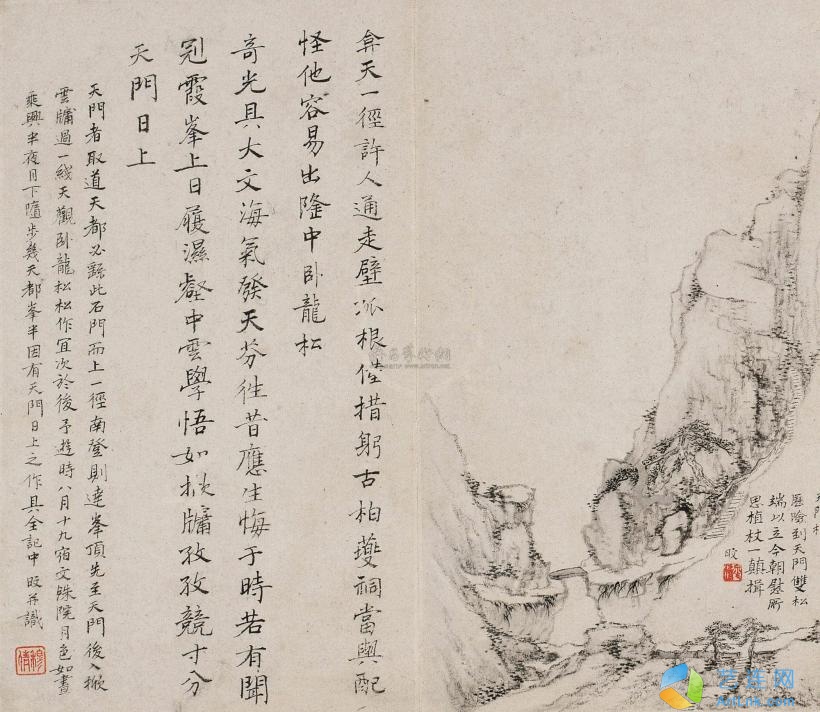 歷險到天門雙松
端以立今朝慰所
思植杖一顛揖
旼
弇天一徑許人通走壁孤根僅措躬古柏夔祠當與配
怪他容易出隆中臥龍松
奇光具大文海氣發天芬往昔應生悔于時若有聞
冠霞峯上日履濕壑中雲學悟如掀牖孜孜競寸分
天門日上
天門者取道天都必繇此石門而上一徑南登則達峯頂先至天門後入掀
雲牖過一綫天觀臥龍松松作宜次於後予遊時八月十九宿文殊院月色如晝
乘興半夜月下隨步幾天都峯半因有天門日上之作具全記中旼并識